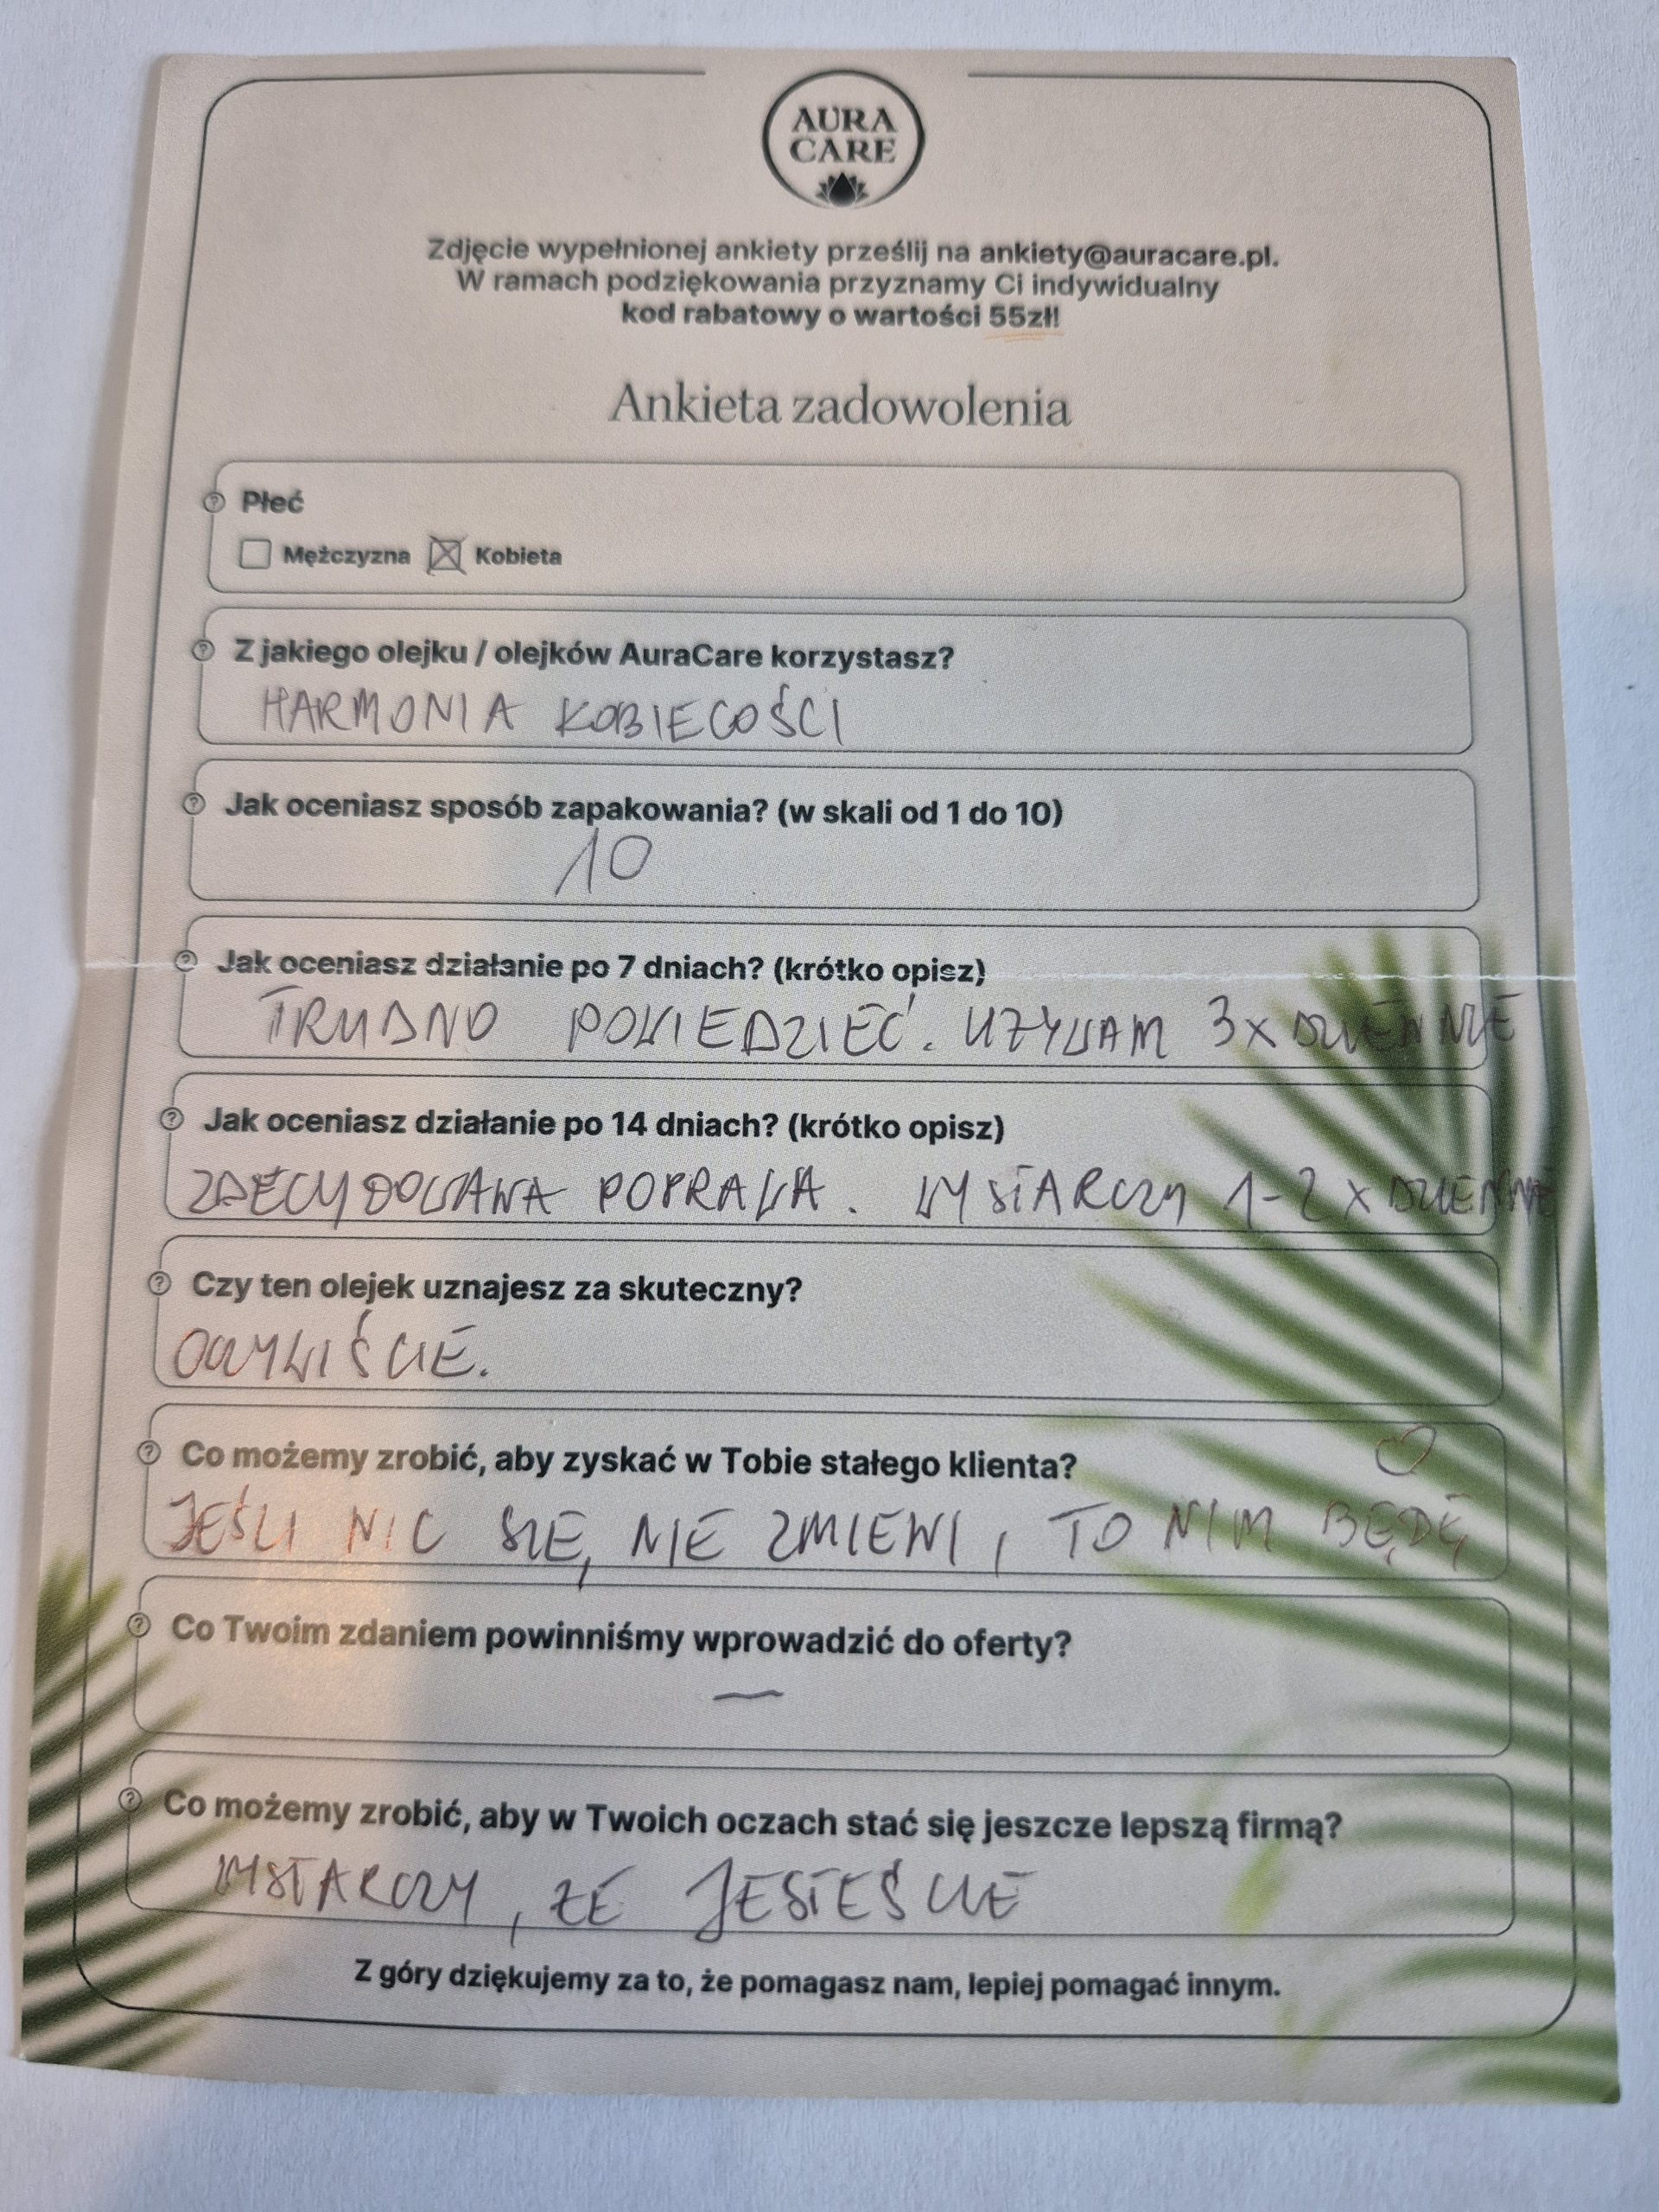 AURA
CARE
Zdjęcie wypełnionej ankiety prześlij na ankiety@auracare.pl.
W ramach podziękowania przyznamy Ci indywidualny
kod rabatowy o wartości 55zł!
Ankieta zadowolenia
Płeć
Mężczyzna Kobieta
Z jakiego olejku / olejków AuraCare korzystasz?
HARMONIA KOBIECOŚCI
Jak oceniasz sposób zapakowania? (w skali od 1 do 10)
10
Jak oceniasz działanie po 7 dniach? (krótko opisz)
TRUDNO POWIEDZIEĆ. UŻYWAM 3x DZIENNIE
Jak oceniasz działanie po 14 dniach? (krótko opisz)
ZDECYDOWANA POPRAWA. WYSTARCZY 1-2 x DZIENNIE
Czy ten olejek uznajesz za skuteczny?
OCZYWIŚCIE.
Co możemy zrobić, aby zyskać w Tobie stałego klienta?
JEŚLI NIC SIĘ NIE ZMIENI, TO NIM BĘDĘ
Co Twoim zdaniem powinniśmy wprowadzić do oferty?
—
Co możemy zrobić, aby w Twoich oczach stać się jeszcze lepszą firmą?
WYSTARCZY, ŻE JESTEŚCIE
Z góry dziękujemy za to, że pomagasz nam, lepiej pomagać innym.